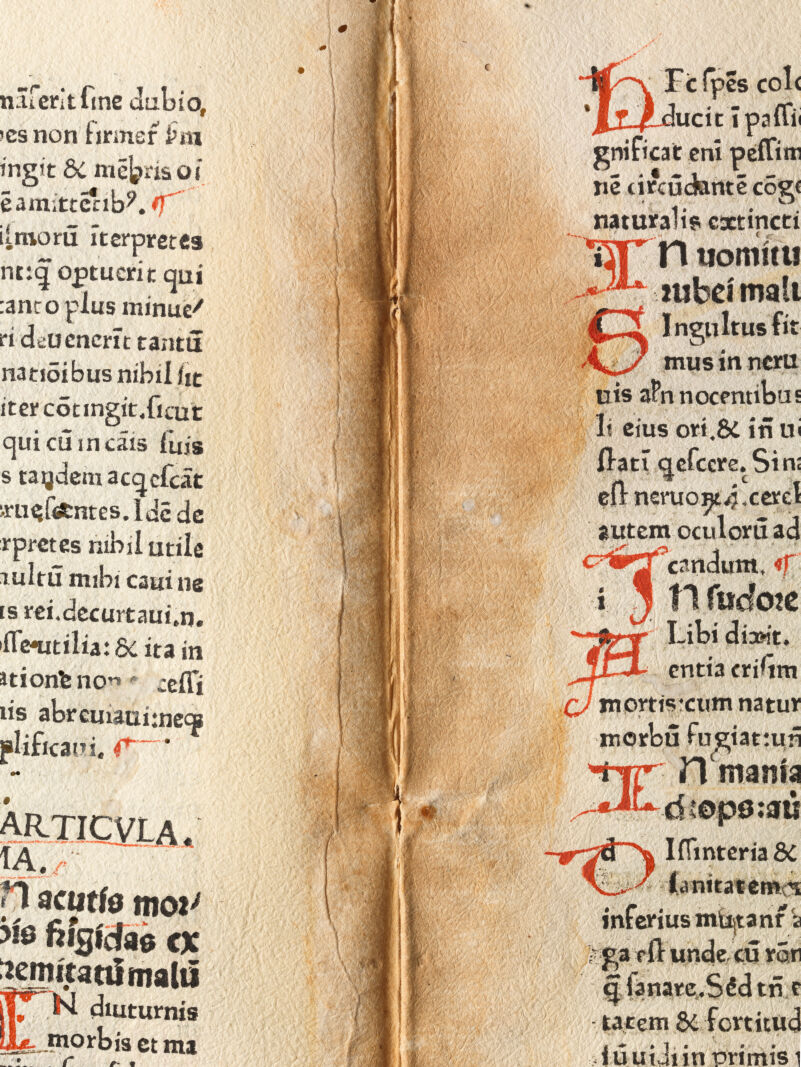 māſerit ſine dubio,
es non firmeſ
ingit & mēbris oī
ē amittētibꝰ. ¶
moꝝū īterpretes
nt:q̄ optuerit qui
tanto plus minue/
ri deuenerīt tantū
natiōibus nihil ſit
iter cōtingit.ſicut
qui cū in cāis ſuis
s tandem acqeſcāt
erueſcentes.Idē de
rpretes nihil utile
multū mihi caui ne
is rei.decurtaui.n.
ſſe utilia:& ita in
atione non ceſſi
nis abreuiaui:neqꝫ
plificaui. ¶
ARTICVLA.
MA.
N acutis mor/
bis frigidas ex
tremitatū malū
IN diuturnis
morbis et ma
hEc ſpēs colo
ducit ī paſſi
gnificat enī peſſim
nē circūdantē cōge
naturalis extincti
IN uomitu
rubei malu
SIngultus fit
mus in neru
uis nocentibus
li eius ori.& iñ
ſtatī qeſcere. Sin
eſt neruoꝝ .cereb
autem oculorū ad
candum. ¶
IN ſudore
ALibi dixit.
entia criſim
mortis:cum natur
morbū fugiat:uñ
IN mania
drops:aū
dIſſinteria &
ſanitatem
inferius mutanſ
ga eſt unde cū rōn
q̄ ſanare.Sed tñ
tatem & fortitud
in primis